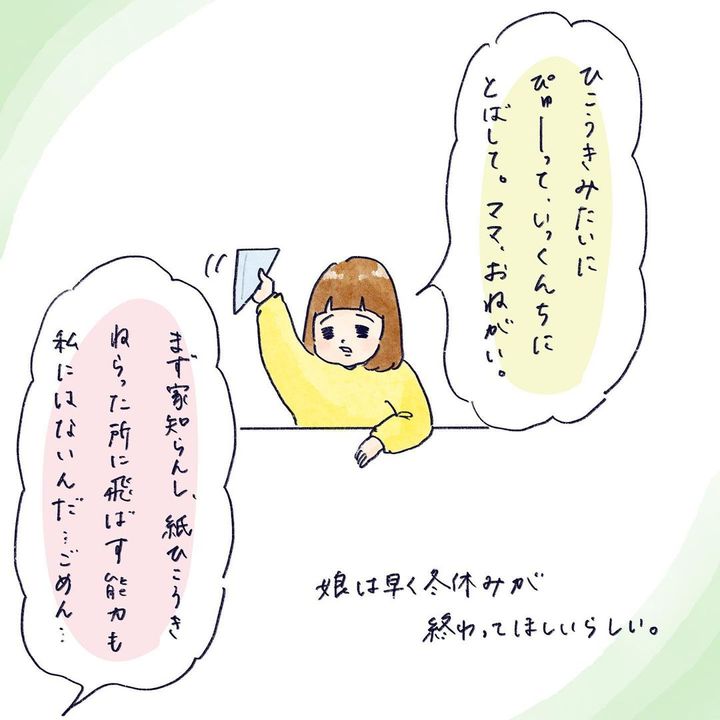 ひこうきみたいに
ぴゅーって、いっくんちに
とばして。ママ、おねがい。
まず家知らんし、紙ひこうき
ねらった所に飛ばす能力も
私にはないんだ…ごめん…
娘は早く冬休みが
終わってほしいらしい。